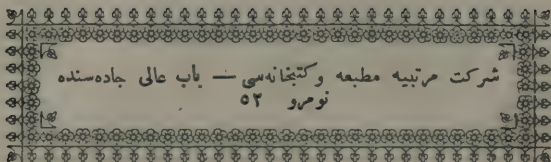 شركت مرتبيه مطبعه وكتبخانه‌سى — باب عالى جاده‌سنده
نومرو ٥٣